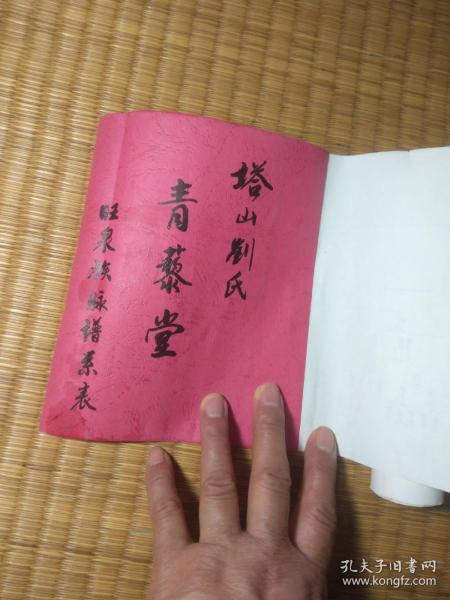 塔山劉氏
青藜堂
旺泉族脉譜系表
孔夫子旧书网
www.kongfz.com